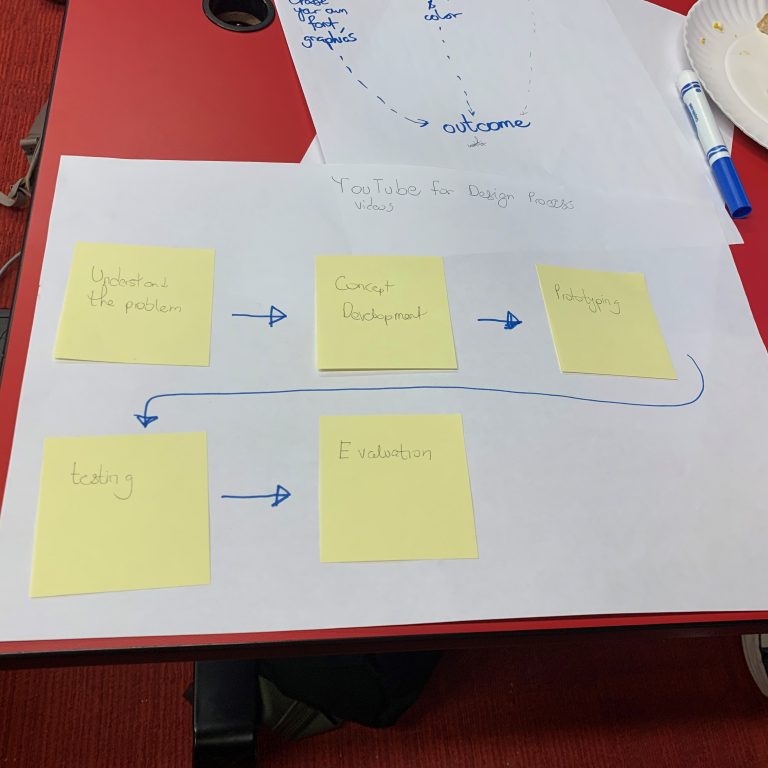 your own
font
graphics
&
color
outcome
YouTube for Design Process
videos
Understand
the problem
Concept
Development
Prototyping
testing
Evaluation